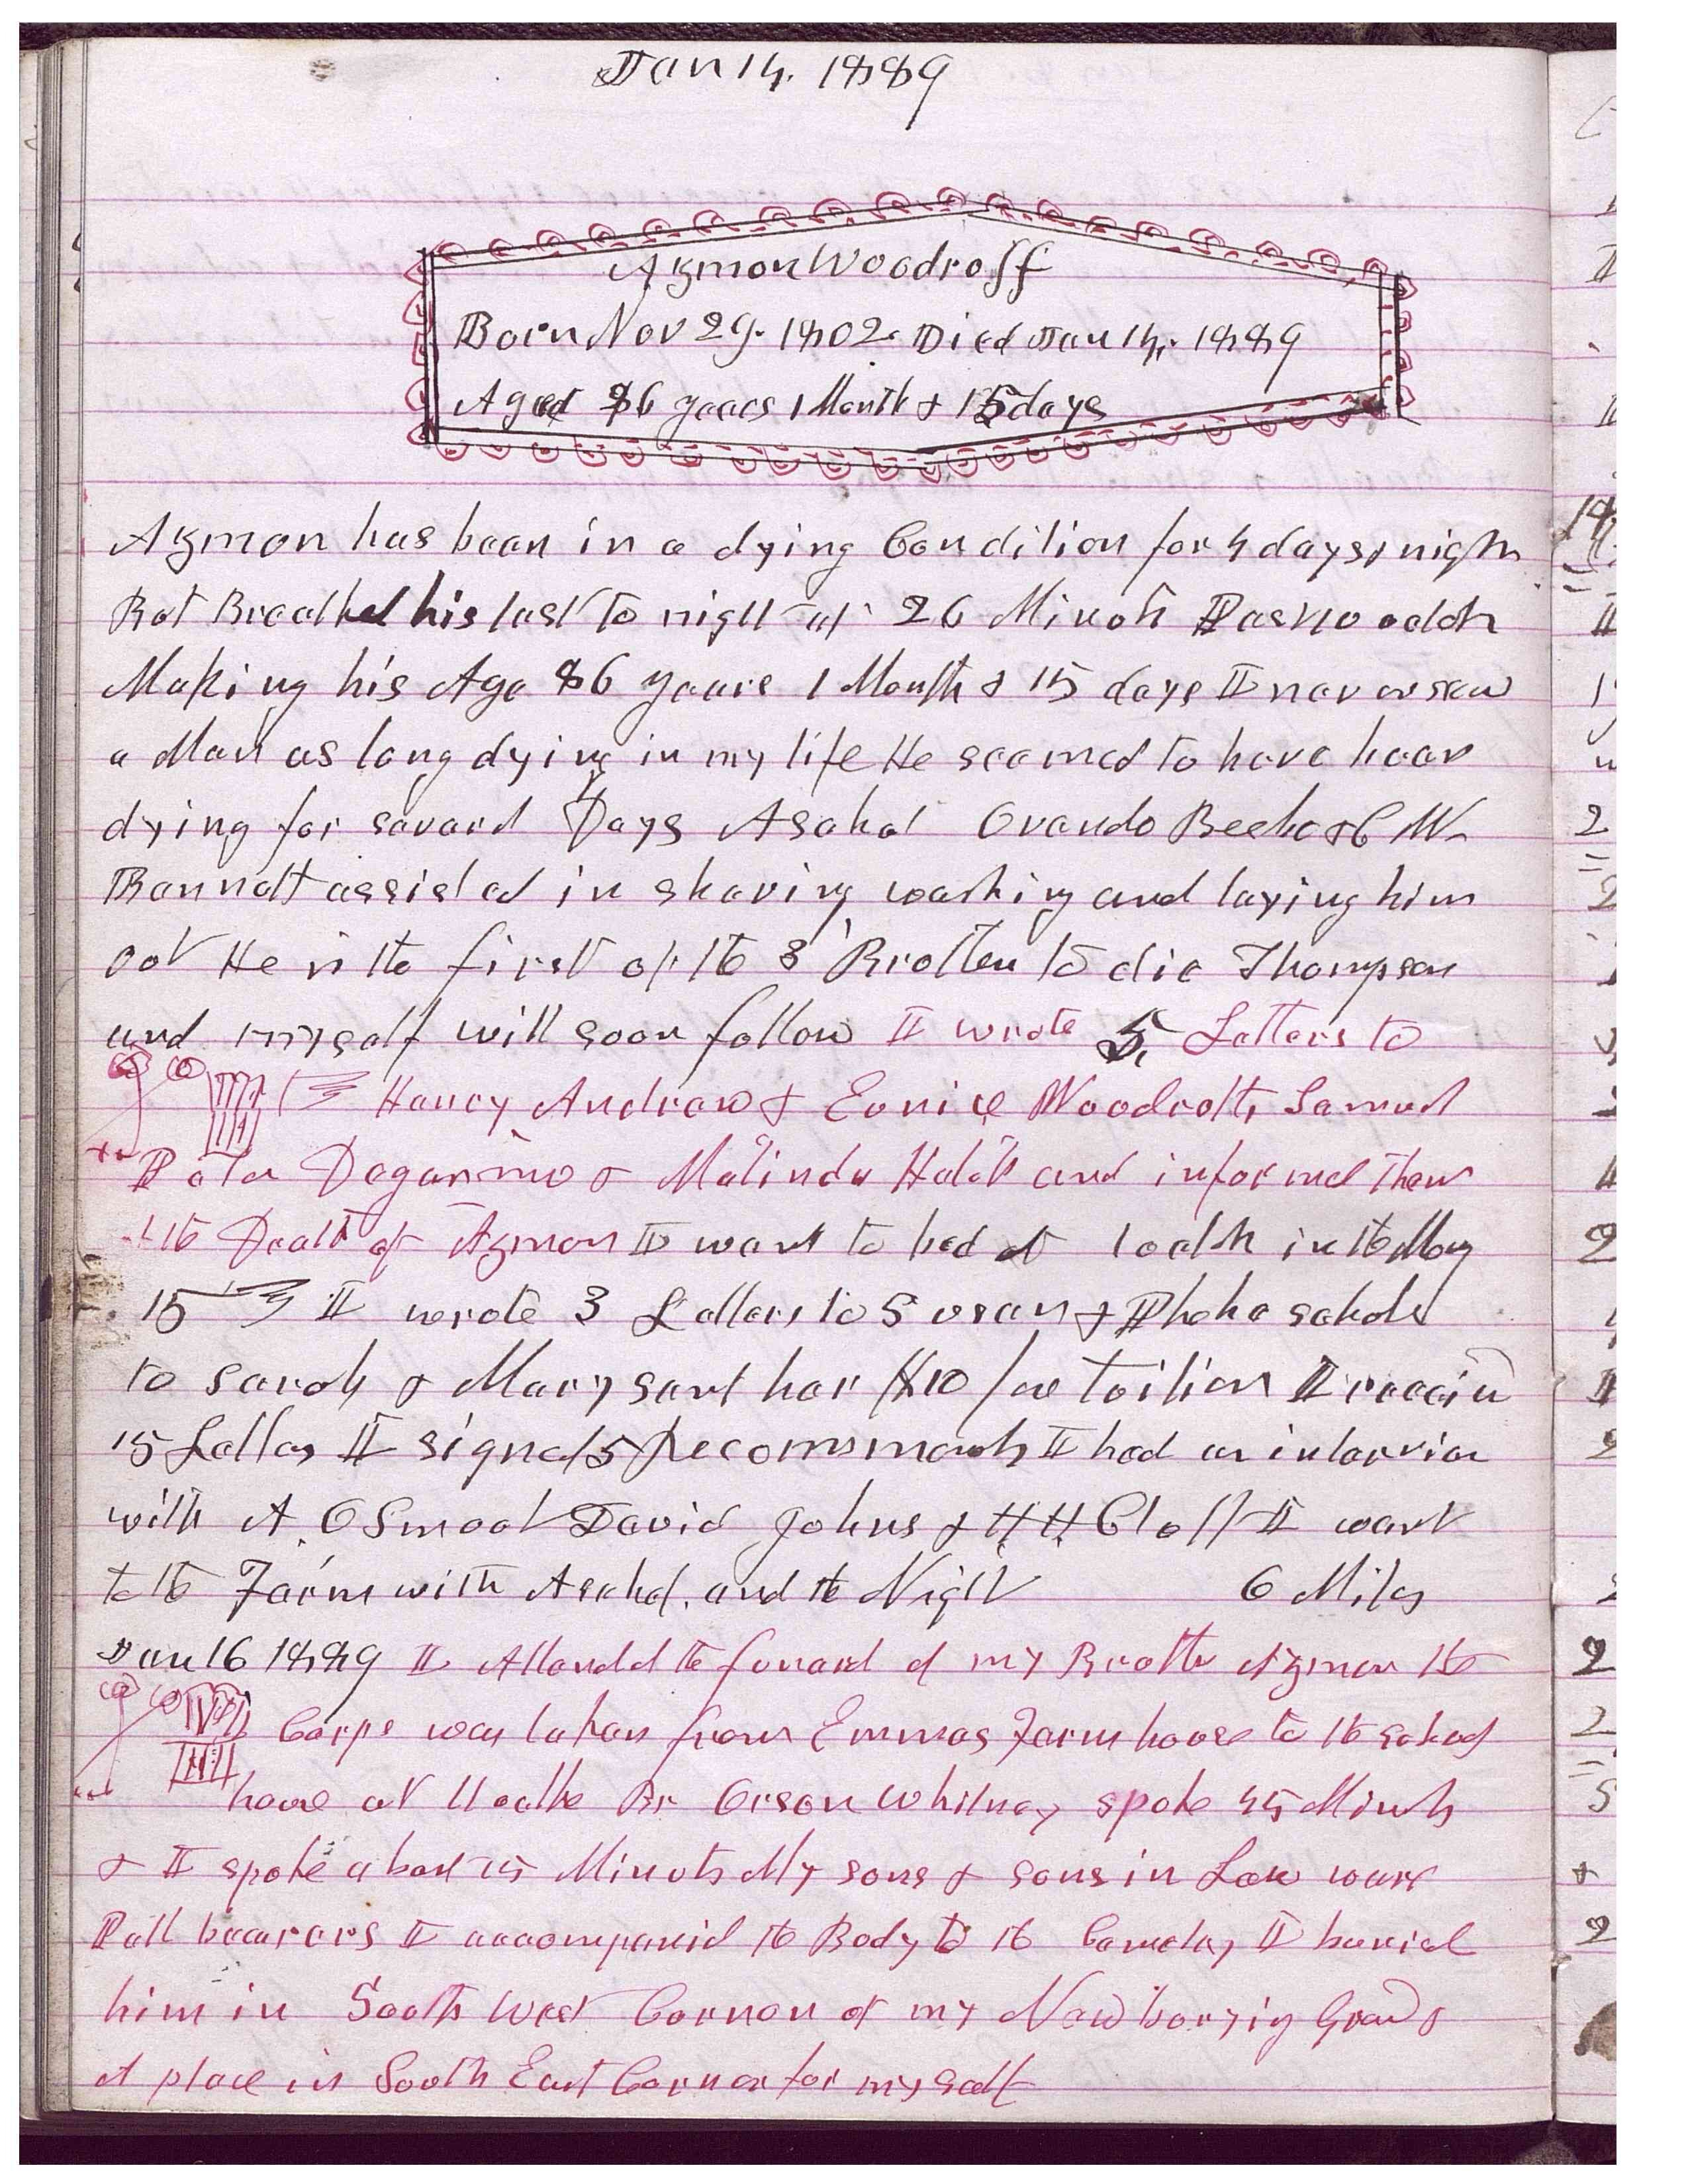 Jan 14. 1889
Azmon Woodruff
Born Nov 29. 1802. Died Jan 14, 1889
Aged 86 years 1 Month & 15 days
Azmon has been in a dying Condition for 4 days & nights
But Breathed his last to night at 26 Minuts Past 10 oclok
Making his Age 86 years 1 Month & 15 days I never saw
a Man as long dying in my life He seemed to have been
dying for several Days Asahel Ovando Beebe & C W
Bennett assisted in shaving washing and laying him
out He is the first of the 3 Brothers to die Thompson
and myself will soon follow I wrote 5 Letters to
Henry Andrew & Eunice Woodruff, Samuel
Peter Degarmo & Malinda Hatch and informed them
the Death of Azmon I went to bed at 1 oclok in the Mong
15 I wrote 3 Letters to Susan & Phebe
to Sarah & Mary sent her $10 for tuition I receivd
15 Letters I signed 5 Recommends I had an interview
with A. O Smoot David Johns & H H Cluff I went
to the Farm with Asahel. and the Night 6 Miles
Jan 16 1889 I Attended the funeral of my Brother Azmon the
Corps was taken from Emmas Farm house to the School
house at 11 oclok Br Orson Whitney spoke 45 Minuts
& I spoke about 15 Minuts My sons & sons in Law were
Pall bearers I accompanied the Body to the Cemetery I buried
him in South West Corner of my New burying Ground
A place in South East Corner for myself